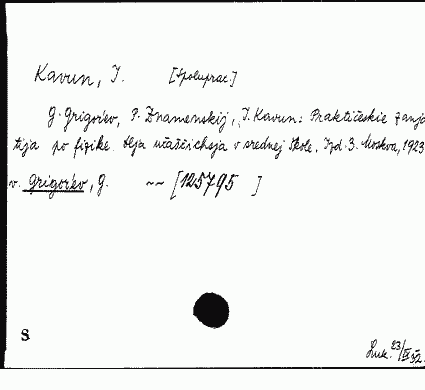 Kavun, I. [Spoluprac.]
G. Grigorév, P. Znamenskij, I. Kavun: Praktičeskie zanja
tija po fizike dlja učaščichsja v srednej škole. Izd. 3. Moskva, 1923
v. Grigorév, G. ~~ [125795 ]
S
Luk. 23/IX 52.